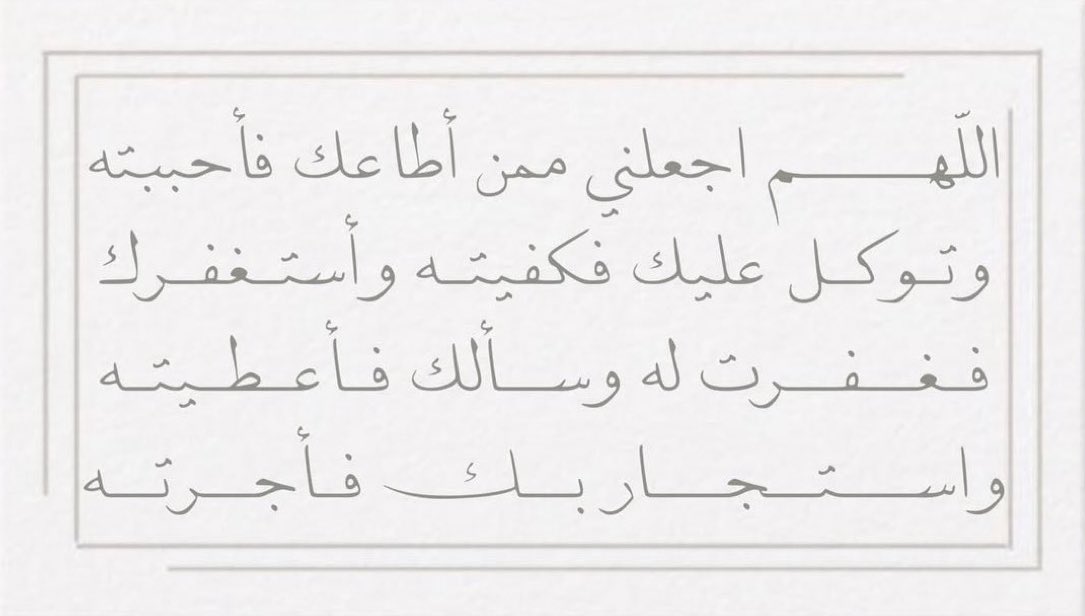 اللّهم اجعلني ممن أطاعك فأحببته
وتوكل عليك فكفيته وأستغفرك
فغفرت له وسألك فأعطيته
واستجار بك فأجرته